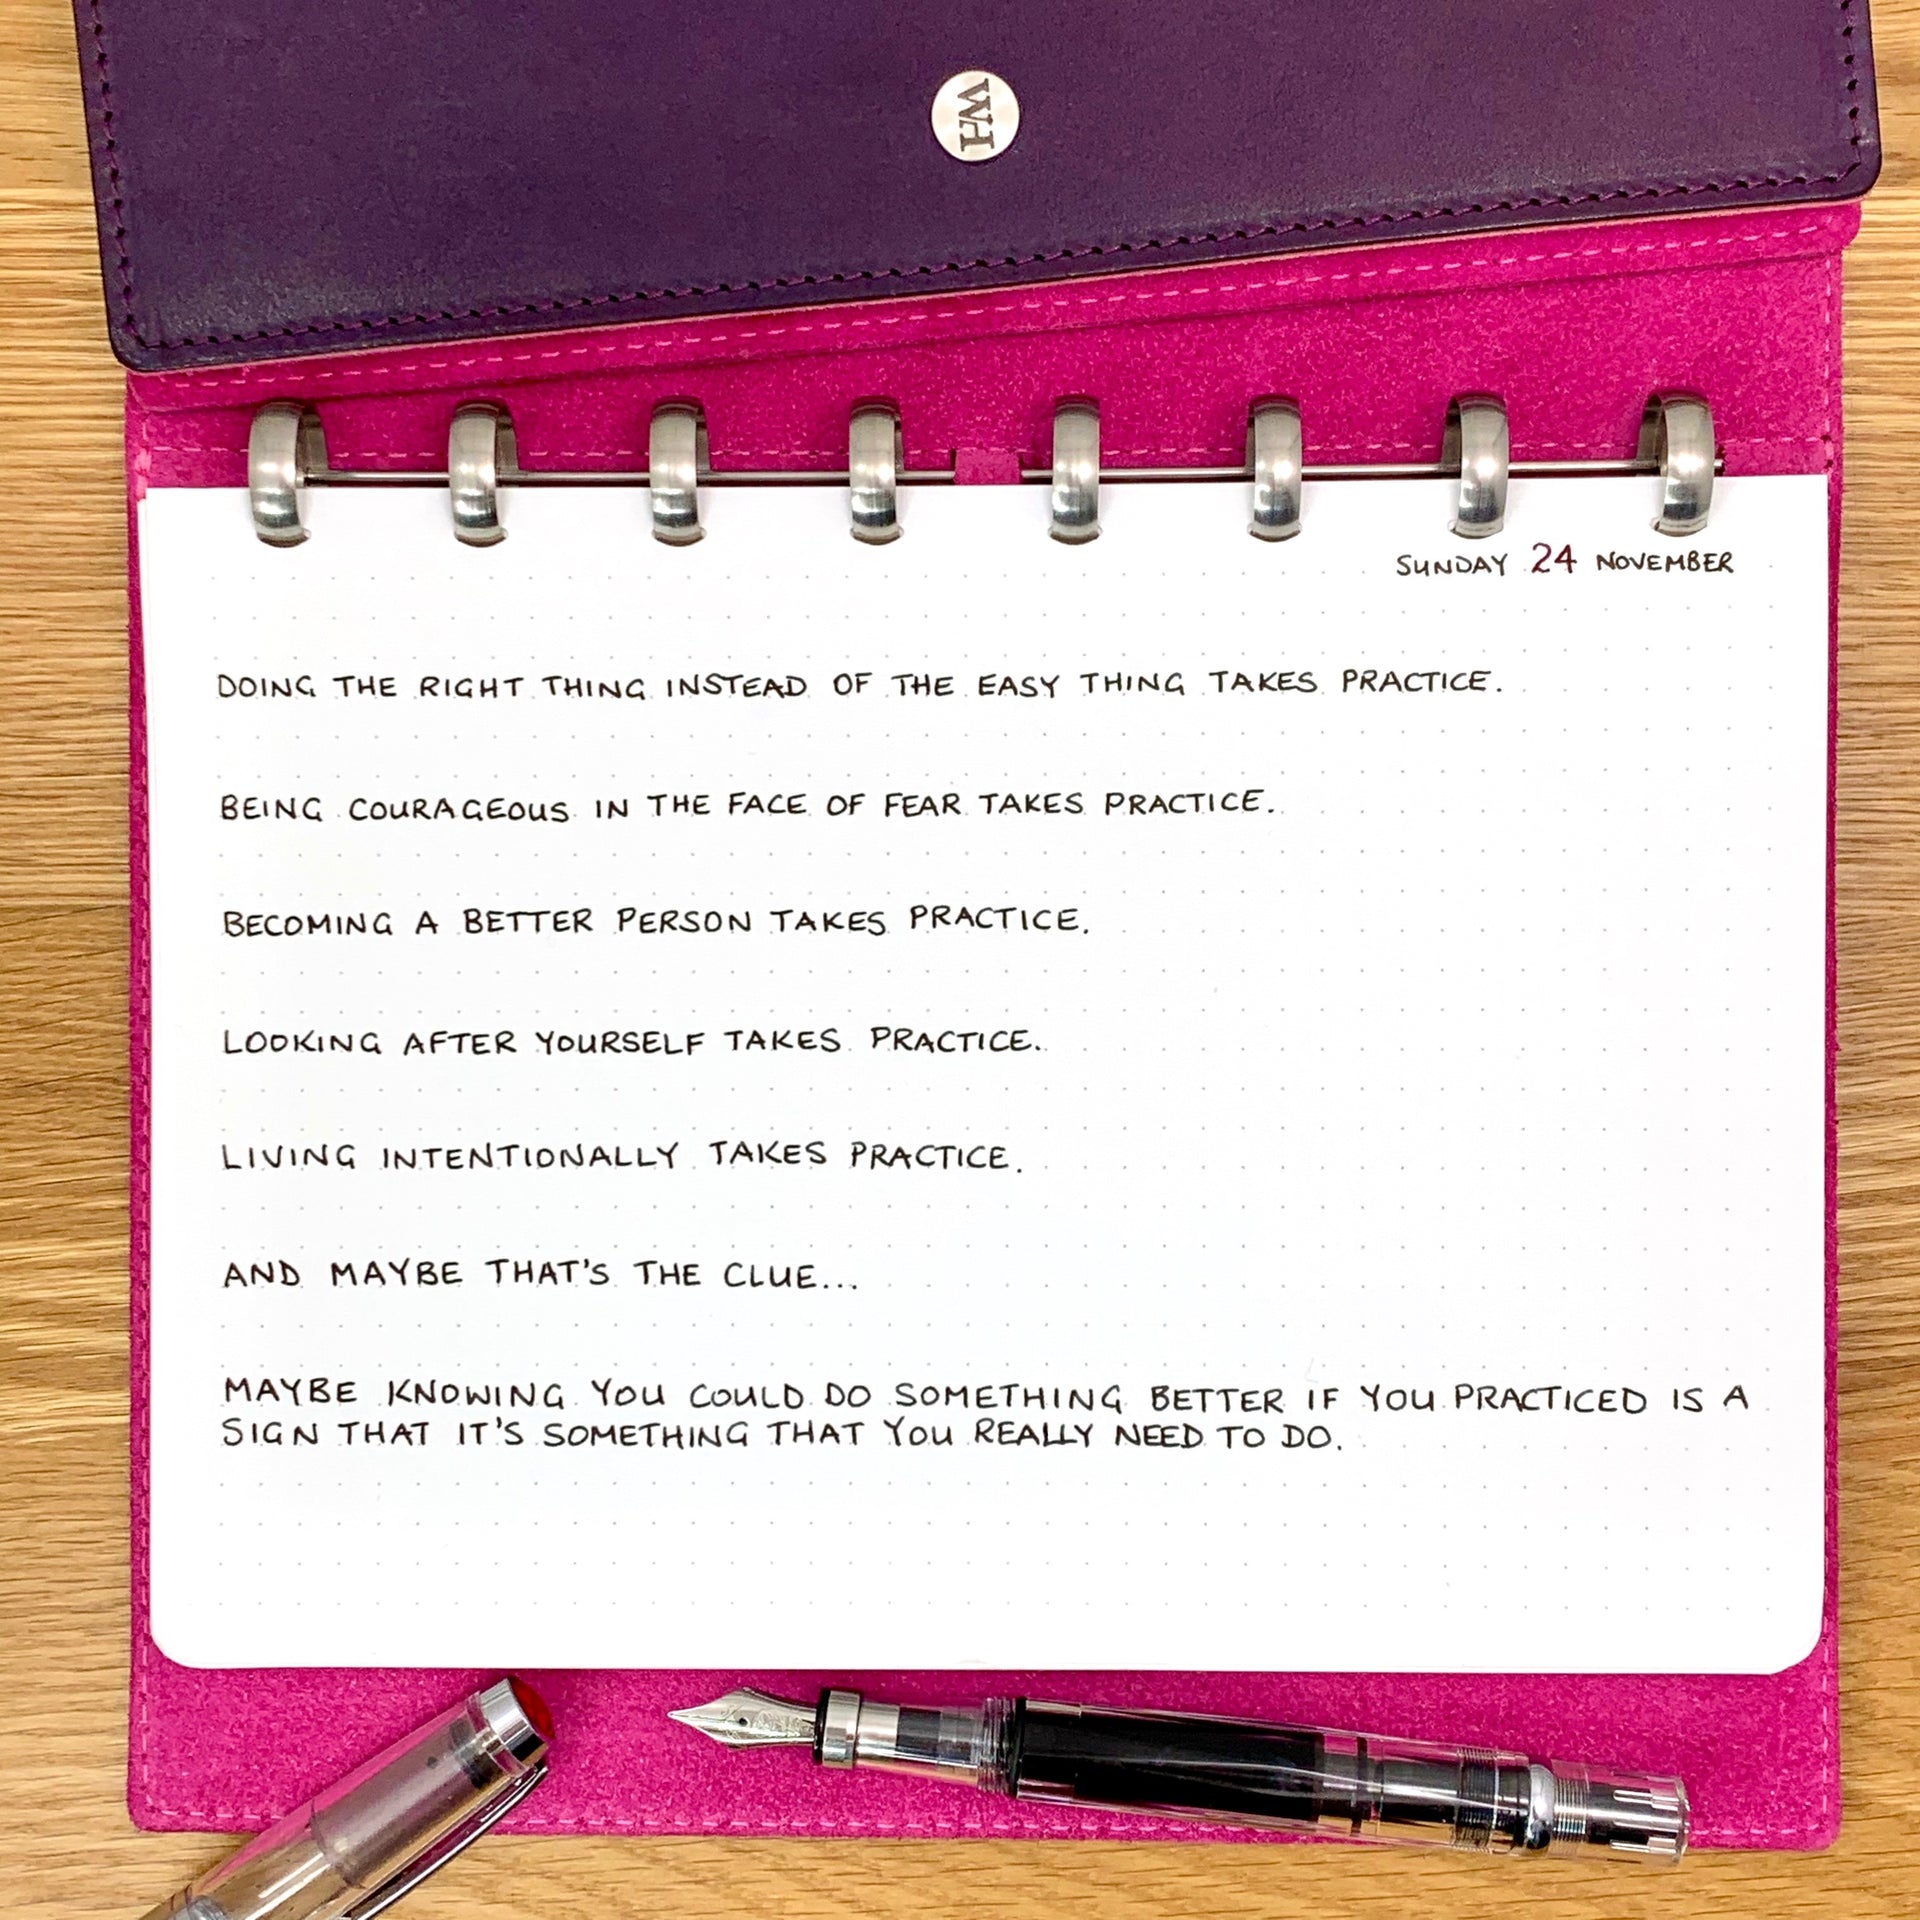 WH
SUNDAY 24 NOVEMBER
DOING THE RIGHT THING INSTEAD OF THE EASY THING TAKES PRACTICE.
BEING COURAGEOUS IN THE FACE OF FEAR TAKES PRACTICE.
BECOMING A BETTER PERSON TAKES PRACTICE.
LOOKING AFTER YOURSELF TAKES PRACTICE.
LIVING INTENTIONALLY TAKES PRACTICE.
AND MAYBE THAT'S THE CLUE...
MAYBE KNOWING YOU COULD DO SOMETHING BETTER IF YOU PRACTICED IS A
SIGN THAT IT'S SOMETHING THAT YOU REALLY NEED TO DO.